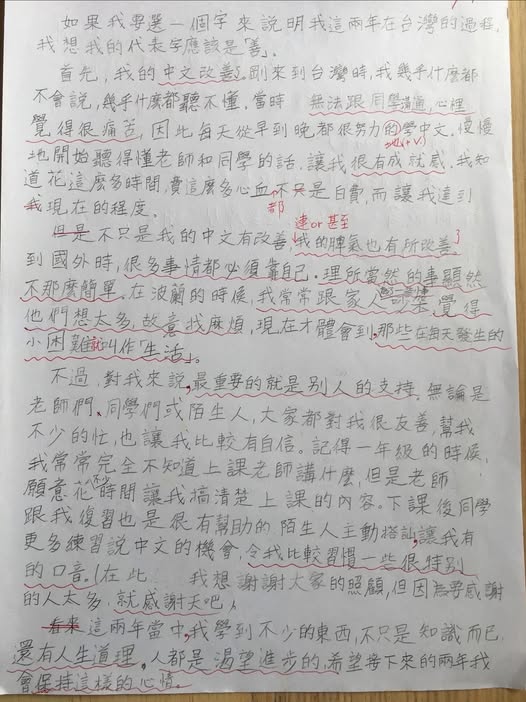 如果我要選一個字來說明我這兩年在台灣的過程，
我想我的代表字應該是「善」。
首先，我的中文改善。剛來到台灣時，我幾乎什麼都
不會說，幾乎什麼都聽不懂，當時 無法跟同學溝通，心裡
覺得很痛苦，因此每天從早到晚都很努力的學中文，慢慢
地(+V)
地開始聽得懂老師和同學的話，讓我很有成就感。我知
道花這麼多時間，費這麼多心血不只是白費，而讓我達到
都
我現在的程度。
連or甚至
但是不只是我的中文有改善，我的脾氣也有所改善。
到國外時，很多事情都必須靠自己。理所當然的事顯然
不那麼簡單。在波蘭的時候，我常常跟家人 架，覺得
他們想太多，故意找麻煩，現在才體會到，那些在每天發生的
小困難就叫作「生活」。
不過，對我來說，最重要的就是別人的支持。無論是
老師們、同學們或陌生人，大家都對我很友善，幫我
不少的忙，也讓我比較有自信。記得一年級的時候，
我常常完全不知道上課老師講什麼，但是老師
願意花 時間讓我搞清楚上課的內容。下課後同學
跟我復習也是很有幫助的，陌生人主動搭訕，讓我有
更多練習說中文的機會，令我比較習慣一些很特別
的口音。(在此 我想謝謝大家的照顧，但因為要感謝
的人太多，就感謝天吧！
看來這兩年當中，我學到不少的東西，不只是知識而已，
還有人生道理。人都是渴望進步的，希望接下來的兩年我
會保持這樣的心情。